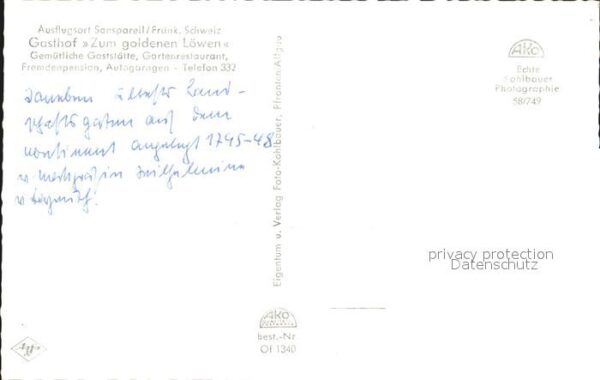 Ausflugsort Sanspareil/Fränk. Schweiz
Gasthof »Zum goldenen Löwen«
Gemütliche Gaststätte, Gartenrestaurant,
Fremdenpension, Autogaragen - Telefon 332
Daneben ältester Land-
schaftsgarten auf dem
Kontinent angelegt 1745-48
v Markgräfin Wilhelmine
v Bayreuth!
Eigentum u. Verlag Foto-Kohlbauer, Pfronten-Allgäu
Ako
Echte
Kohlbauer
Photographie
58/749
privacy protection
Datenschutz
Ako
best.-Nr
Of 1340
Agfa